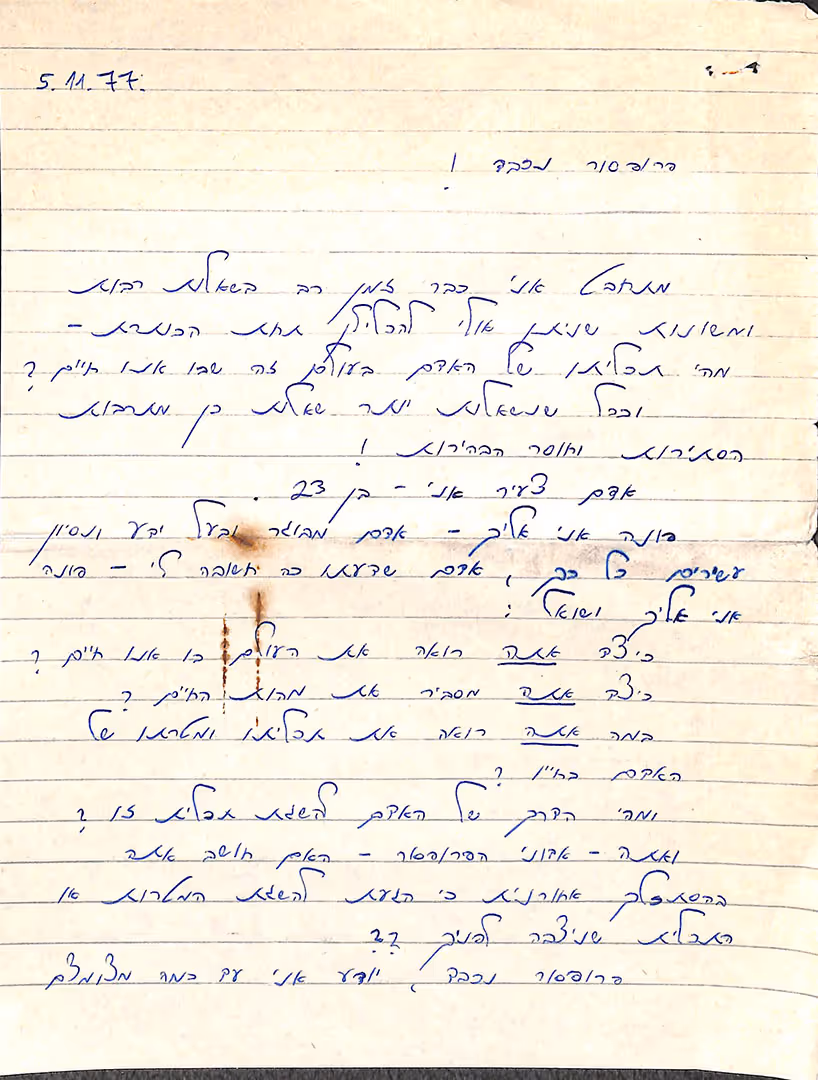 5.11.77.
פרופסור נכבד !
מתחבט אני כבר זמן רב בשאלות רבות
ומשונות שניתן אולי להכלילן תחת הכותרת –
מהי תכליתו של האדם בעולם זה שבו אנו חיים ?
וככל שנשאלות יותר שאלות כן מתרבות
הסתירות וחוסר הבהירות !
אדם צעיר אני – בן 23 .
פונה אני אליך – אדם מבוגר ובעל ידע ונסיון
עשירים כל כך , אדם שדעתו כה חשובה לי – פונה
אני אליך ושואל :
כיצד אתה רואה את העולם בו אנו חיים ?
כיצד אתה מסביר את מהות החיים ?
במה אתה רואה את תכליתו ומטרתו של
האדם בחייו ?
ומהי הדרך של האדם להשגת תכלית זו ?
ואתה – אדוני הפרופסור – האם חושב אתה
בהסתכלך אחורנית כי הגעת להשגת המטרות או
התכלית שניצבה לפניך ??
פרופסור נכבד , יודע אני עד כמה מצומצם